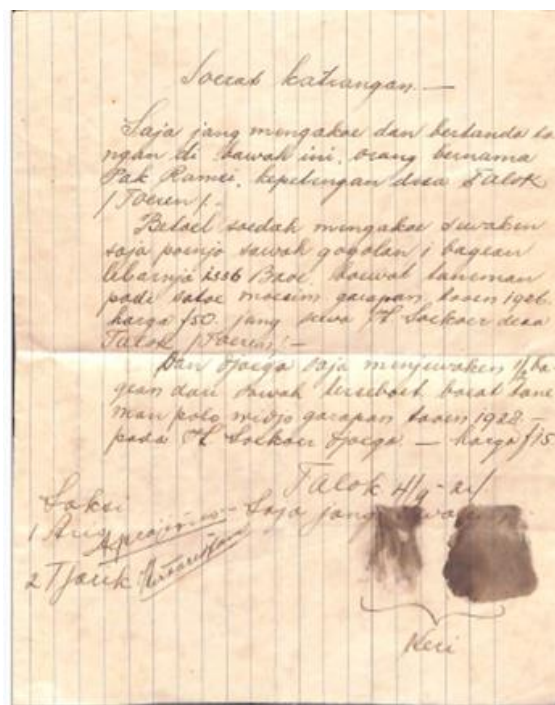 Soerat katrangan. —
Saja jang mengakoe dan bertanda ta-
ngan di bawah ini, orang bernama
Pak Ramsi, kepetengan desa Talok
/Toeren/.
Betoel soedah mengakoe sewaken
saja poenjo sawah gogolan 1 bagean
lebarnja 1556 Baoe, boewat taneman
padi satoe moesim garapan taoen 1926.
harga f50. jang sewa H Soekoer desa
Talok /Toeren/. —
Dan djoega saja menjewaken 1/2 ba-
gean dari sawah terseboet boeat tane-
man polo widjo garapan taoen 1928. —
pada H Soekoer djoega. — harga f15
Talok 4/9 -
Saksi
Saja jang
1
2 Tjarik
Keri